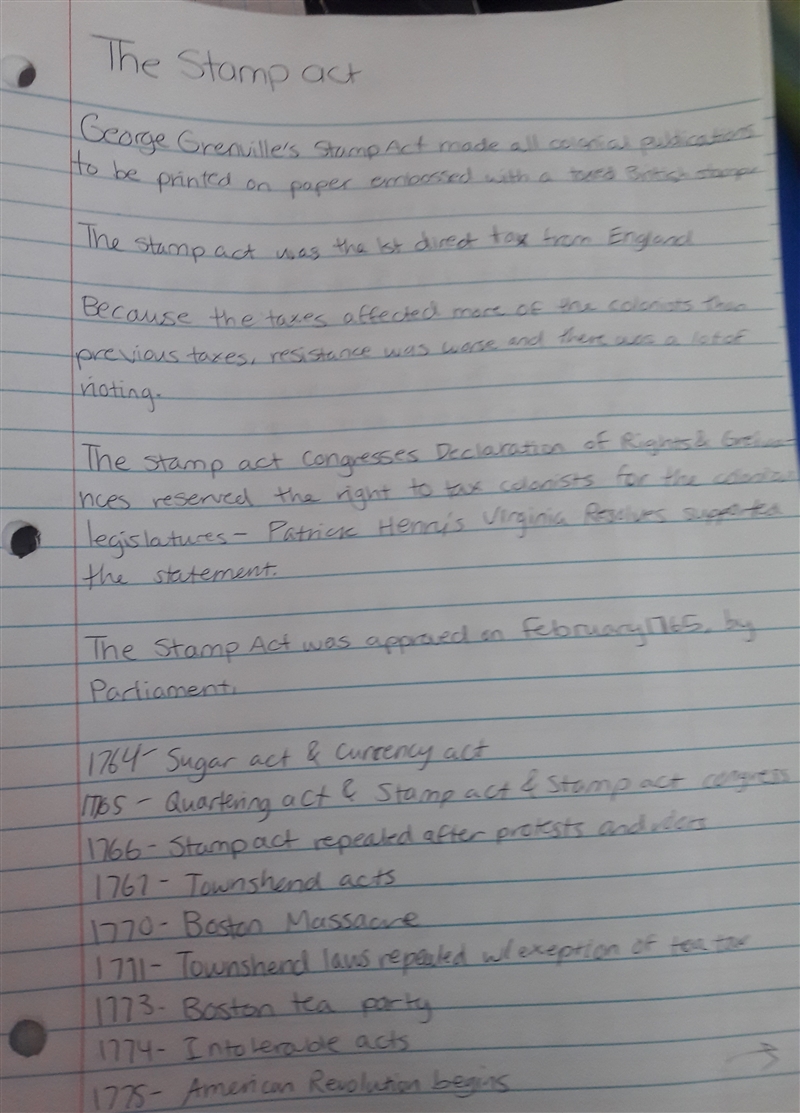 The Stamp act
George Grenville's Stamp Act made all colonial publications
to be printed on paper embossed with a taxed British stamp
The stamp act was the 1st direct tax from England
Because the taxes affected more of the colonists than
previous taxes, resistance was worse and there was a lot of
rioting.
The stamp act congresses Declaration of Rights &
nces reserved the right to tax colonists for the
legislatures - Patrick Henry's Virginia Resolves supported
the statement.
The Stamp Act was approved on february 1765, by
Parliament.
1764- Sugar act & Currency act
1765 - Quartering act & Stamp act & Stamp act congress
1766- Stamp act repealed after protests and
1767- Townshend acts
1770- Boston Massacre
1771- Townshend laws repealed w/exeption of tea tax
1773- Boston tea party
1774- Intolerable acts
1775- American Revolution begins
→